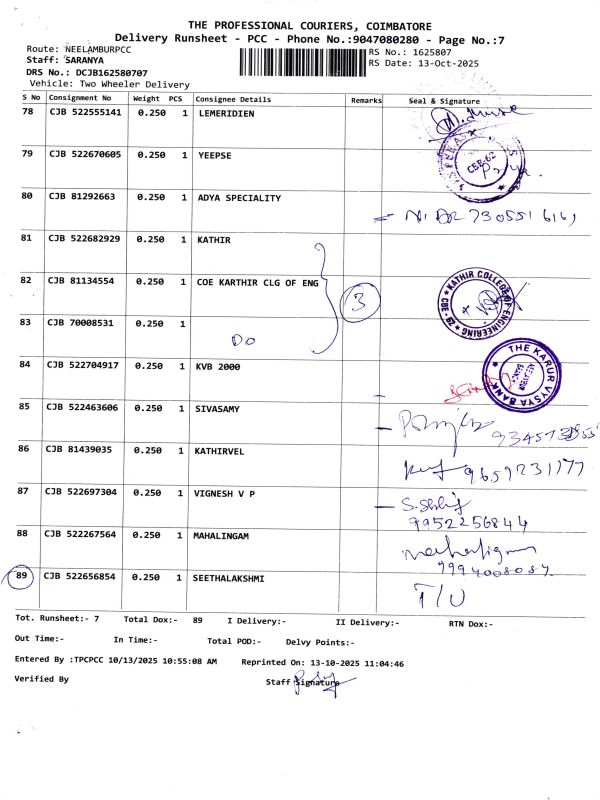 THE PROFESSIONAL COURIERS, COIMBATORE
Delivery Runsheet - PCC - Phone No.:9047080280 - Page No.:7
Route: NEELAMBURPCC
RS No.: 1625807
Staff: SARANYA
RS Date: 13-Oct-2025
DRS No.: DCJB162580707
Vehicle: Two Wheeler Delivery
S No Consignment No Weight PCS Consignee Details Remarks Seal & Signature
78 CJB 522555141 0.250 1 LEMERIDIEN
79 CJB 522670605 0.250 1 YEEPSE
CBE-62
80 CJB 81292663 0.250 1 ADYA SPECIALITY
81 CJB 522682929 0.250 1 KATHIR
82 CJB 81134554 0.250 1 COE KARTHIR CLG OF ENG
3
KATHIR COLLEGE OF ENGINEERING CBE - 62
83 CJB 70008531 0.250 1
Do
84 CJB 522704917 0.250 1 KVB 2000
THE KARUR VYSYA BANK
85 CJB 522463606 0.250 1 SIVASAMY
86 CJB 81439035 0.250 1 KATHIRVEL
9659231177
87 CJB 522697304 0.250 1 VIGNESH V P
9952256844
88 CJB 522267564 0.250 1 MAHALINGAM
89 CJB 522656854 0.250 1 SEETHALAKSHMI
T/U
Tot. Runsheet:- 7 Total Dox:- 89 I Delivery:- II Delivery:- RTN Dox:-
Out Time:- In Time:- Total POD:- Delvy Points:-
Entered By :TPCPCC 10/13/2025 10:55:08 AM Reprinted On: 13-10-2025 11:04:46
Verified By Staff Signature